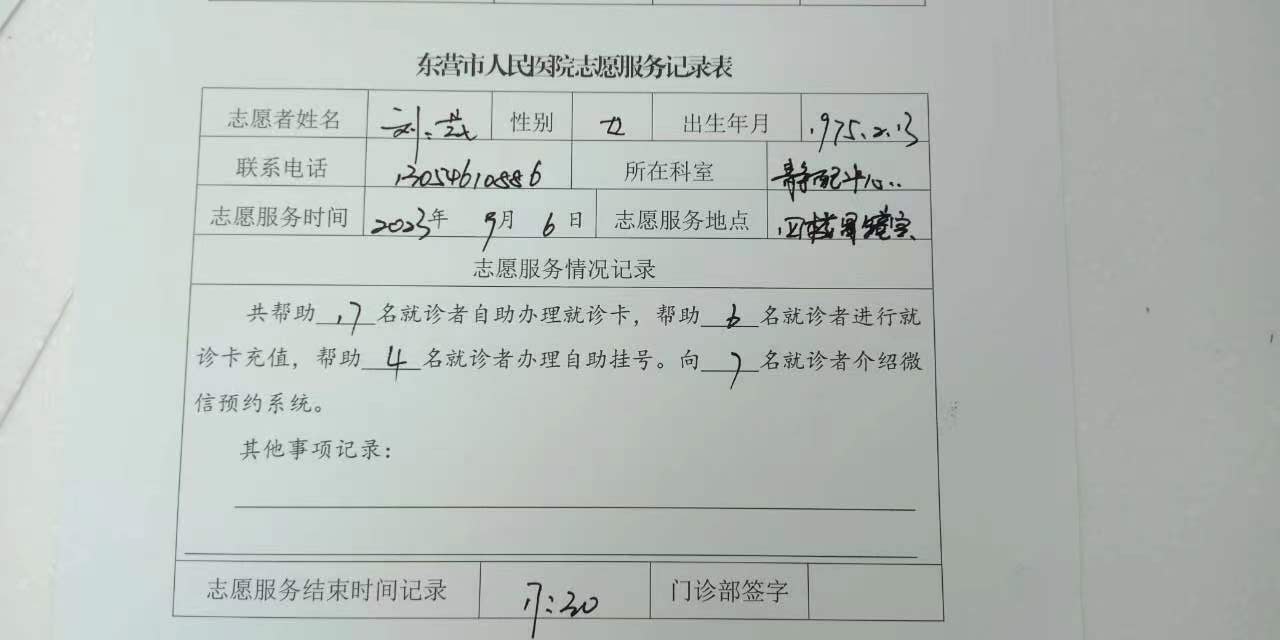 东营市人民医院志愿服务记录表
志愿者姓名 刘 性别 女 出生年月 1975.2.13
联系电话 13054610886 所在科室 静配中心
志愿服务时间 2023年 9月 6日 志愿服务地点 胃镜室
志愿服务情况记录
共帮助 17 名就诊者自助办理就诊卡，帮助 6 名就诊者进行就
诊卡充值，帮助 4 名就诊者办理自助挂号。向 7 名就诊者介绍微
信预约系统。
其他事项记录：
志愿服务结束时间记录 17:30 门诊部签字